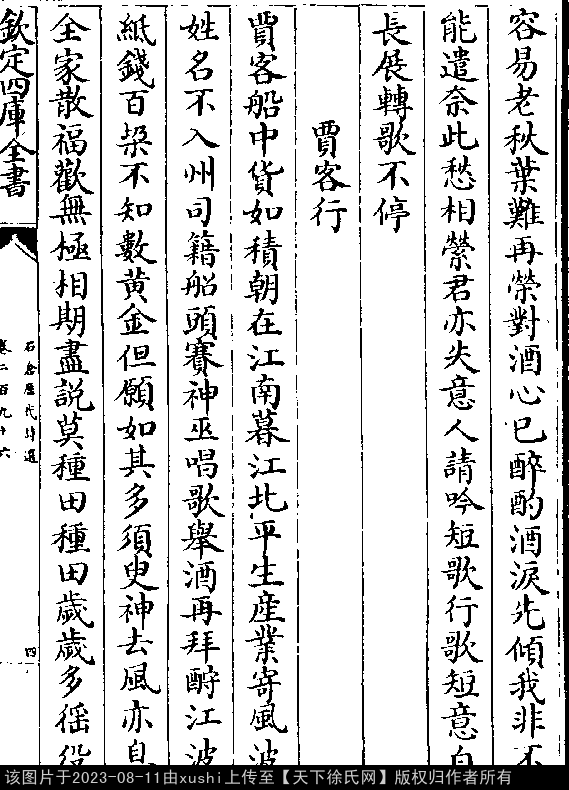 容易老秋葉難再榮對酒心已醉酌酒淚先傾我非不
能遣奈此愁相縈君亦失意人請吟短歌行歌短意自
長展轉歌不停
賈客行
賈客船中貨如積朝在江南暮江北平生産業寄風波
姓名不入州司籍船頭賽神巫唱歌舉酒再拜酹江波
紙錢百架不知數黄金但願如其多須臾神去風亦息
全家散福歡無極相期盡説莫種田種田歲歲多徭役
欽定四庫全書
石倉歷代詩選
卷二百九十六
四
该图片于2023-08-11由xushi上传至【天下徐氏网】版权归作者所有